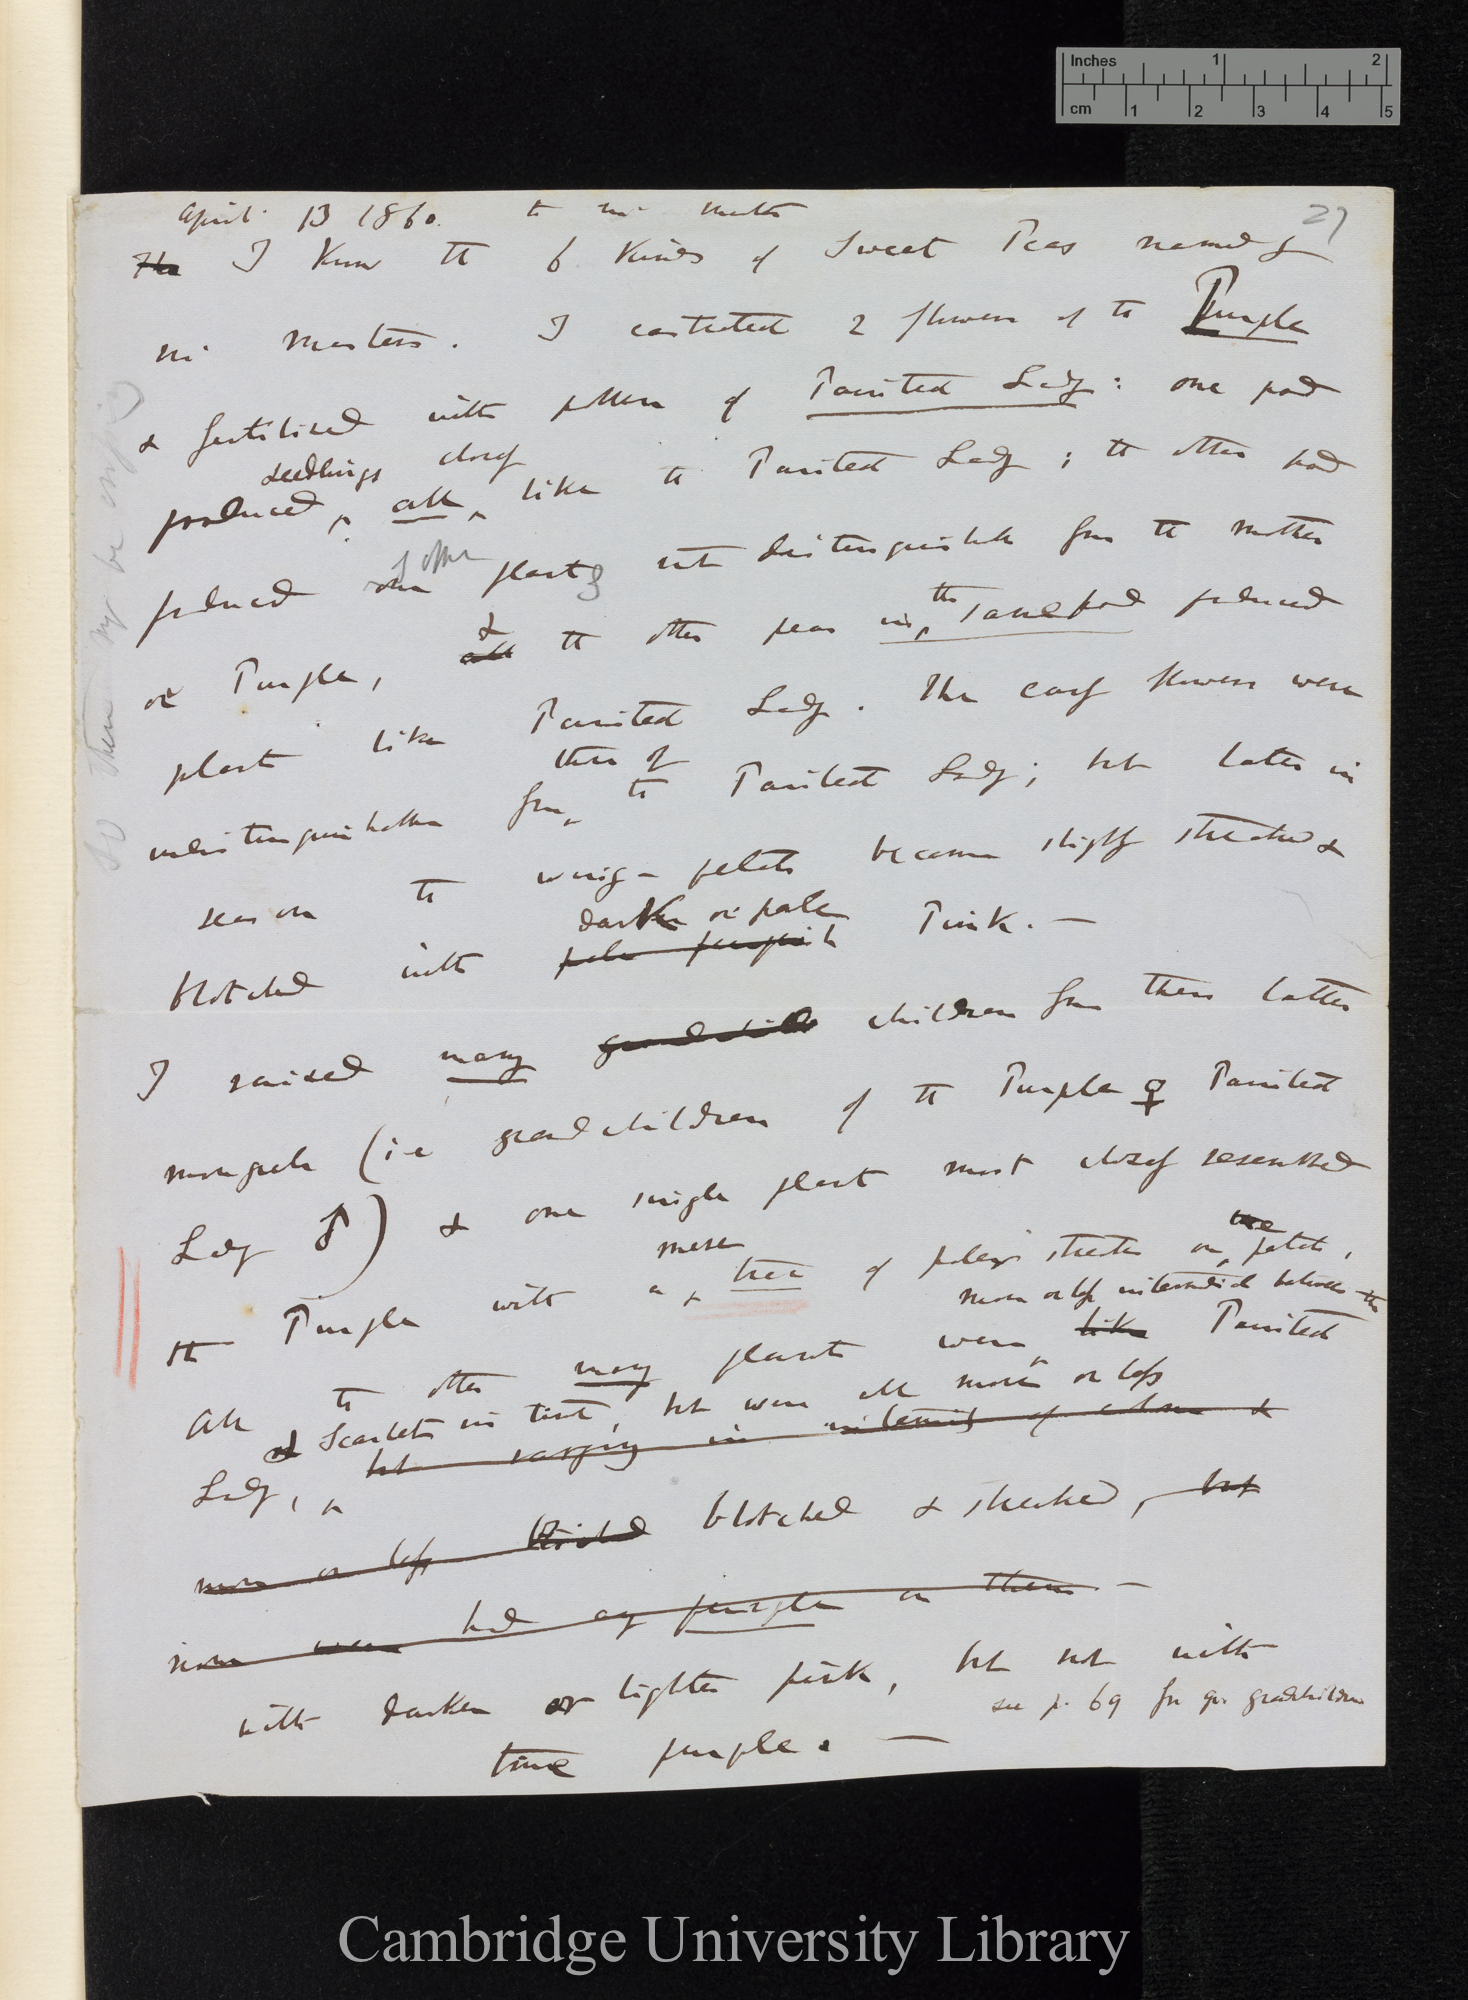 Inches 1 2
cm 1 2 3 4 5
27
April 13 1860.
The I know the 6 kinds of Sweet Peas named by
Mr Masters. I castrated 2 flowers of the Purple
& fertilised with pollen of Painted Lady: one pod
seedlings closely
produced, all, like the Painted Lady; the other pod
produced one plant not distinguishable from the mother
&
or Purple, all the other peas in the same pod produced
plants like Painted Lady. The early flowers were
those of
undistinguishable from the Painted Lady; but later in
season the wing-petals became slightly streaked &
dark or pale
blotched with pale purplish Pink. —
I raised many grandchild children from these latter
mongrels (i.e grandchildren of the Purple ♀ Painted
Lady ♂) & one single plant most closely resembled
mere the
the Purple with a trace of paler streaks on petals,
more or less intermediate between the
All the other many plants were like Painted
& Scarlets in tint, but were all more or less
Lady, but varying in intensity of colour &
more or less blotched & streaked, but
none were had any purple on them —
with darker or lighter pink, but not with
see p. 69 for gr. grandchildren
true purple. —
Cambridge University Library